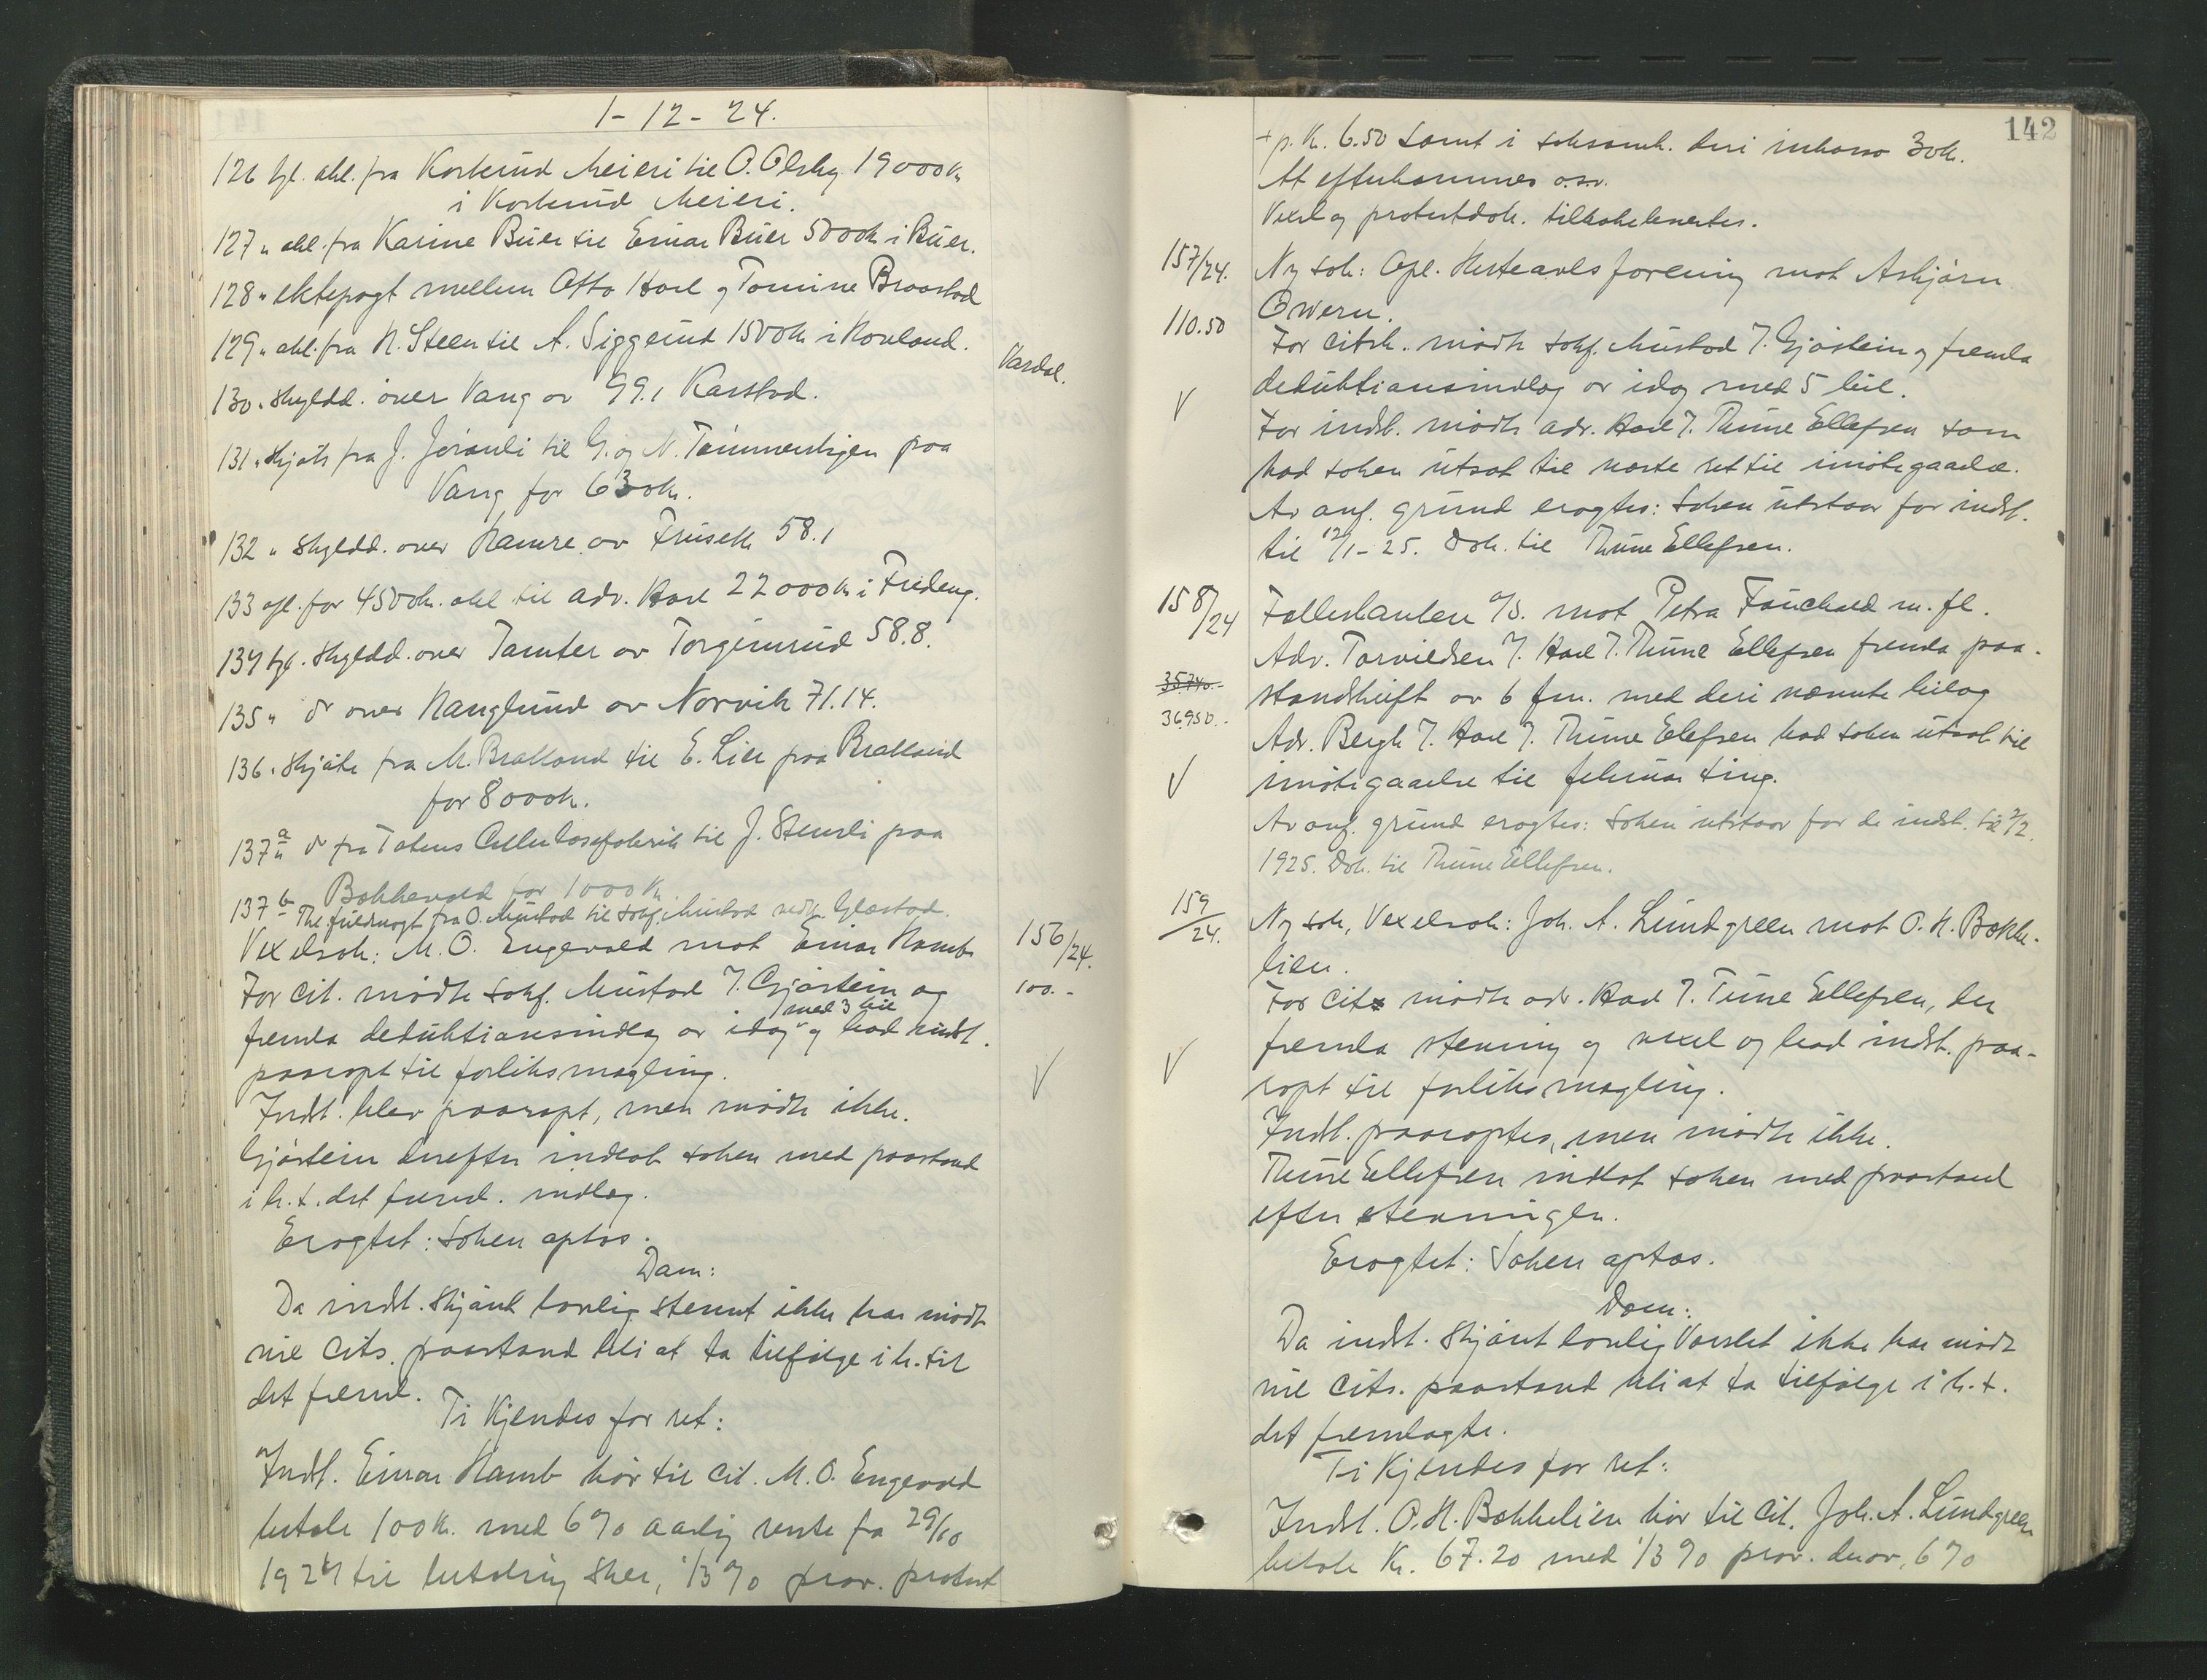 1-12-24.
126 tgl. obl. fra Korterud Meieri til O. Olsby 19000 kr
i Korterud Meieri.
127 " obl. fra Karine Büer til Einar Büer 5000 kr i Büer.
128 " ektepagt mellem Otto Hoel og Tomine Braastad
129 " obl. fra N. Steen til A. Siggerud 1500 kr i
Vardal.
130 " Skyldd. over Vang av 99.1 Karstad.
131 " Skjøte fra J. til G. og N. Tømmerstigen paa
Vang for 630 kr.
132 " Skyldd. over Hamre av 58.1
133 afl. for 4500 kr. obl til adv. Hoel 22000 kr i Fredeng.
134 tgl. Skyldd. over Tamter av Torgimrud 58.8.
135 " do over Hauglund av Norvik 71.14.
136 " Skjøte fra M. Bratland til E. Lier paa Bratland
for 8000 kr.
137 a " do fra Totens Cellulosefabrik til J. Stensli paa
Bakkevold for 1000 kr.
137 b Thl. fuldmagt fra O. Mustad til sakf. Mustad vedk. Glæstad.
156/24.
Vexelsak: M. O. Engevold mot Einar Hamb
100.-
For cit. mødte sakf. Mustad v. Gjøstein og
fremla deduktionsindlæg av idag med 3 bil og bad indst.
paaropt til forliksmægling.
Indst. blev paaropt, men mødte ikke.
Gjøstein derefter indlot saken med paastand
i h. t. det fremd. indlæg.
Eragtet: Saken optas.
Dom:
Da indst. skjønt lovlig stevnt ikke har møtt
vil cits. paastand bli at ta tilfølge i h. til
det freml.
Ti kjendes for ret:
Indst. Einar Hamb bør til cit. M. O. Engevold
betale 100 kr. med 6% aarlig rente fra 29/10
1924 til betaling sker, 1/3 % prov. protest
142
+ p. kr. 6.50 samt i saksomk. deri inkasso 30 kr.
At efterkommes o.s.v.
Vexel og protestdok. tilbakelevertes.
157/24.
Ny sak: Opl. Hesteavlsforening mot Asbjørn
110.50
Owern.
For citst. mødte sakf. Mustad v. Gjøstein og fremla
deduktionsindlæg av idag med 5 bil.
For indst. mødte adv. Hoel v. Thune Ellefsen som
bad saken utsat til næste ret til imøtegaaelse.
Av anf. grund eragtes: Saken utstaar for indst.
til 12/1-25. Dok. til Thune Ellefsen.
158/24
Fælleskanten A/S. mot Petra Fauchald m. fl.
Adv. Torvildsen v. Hoel v. Thune Ellefsen fremla paa-
35740.-
standskrift av 6 frm. med deri nævnte bilag
36950.-
Adv. Bergh v. Hoel v. Thune Ellefsen bad saken utsat til
imøtegaaelse til februar ting.
Av anf. grund eragtes: Saken utstaar for de indst. til 2/2
1925. Dok. til Thune Ellefsen.
159/24.
Ny sak, Vexelsak: Joh. A. Lundgreen mot O. H. Bakke-
lien.
For cits mødte adv. Hoel v. Tune Ellefsen, der
fremla stevning og vexel og bad indst. paa-
ropt til forliksmægling.
Indst. paaroptes, men mødte ikke.
Thune Ellefsen indlot saken med paastand
efter stevningen.
Eragtet: Saken optas.
Dom:
Da indst. skjønt lovlig varslet ikke har møtt
vil cits. paastand bli at ta tilfølge i h. t.
det fremlagte.
Ti kjendes for ret:
Indst. O. H. Bakkelien bør til cit. Joh. A. Lundgreen
betale Kr. 67.20 med 1/3 % prov. derav, 6 %